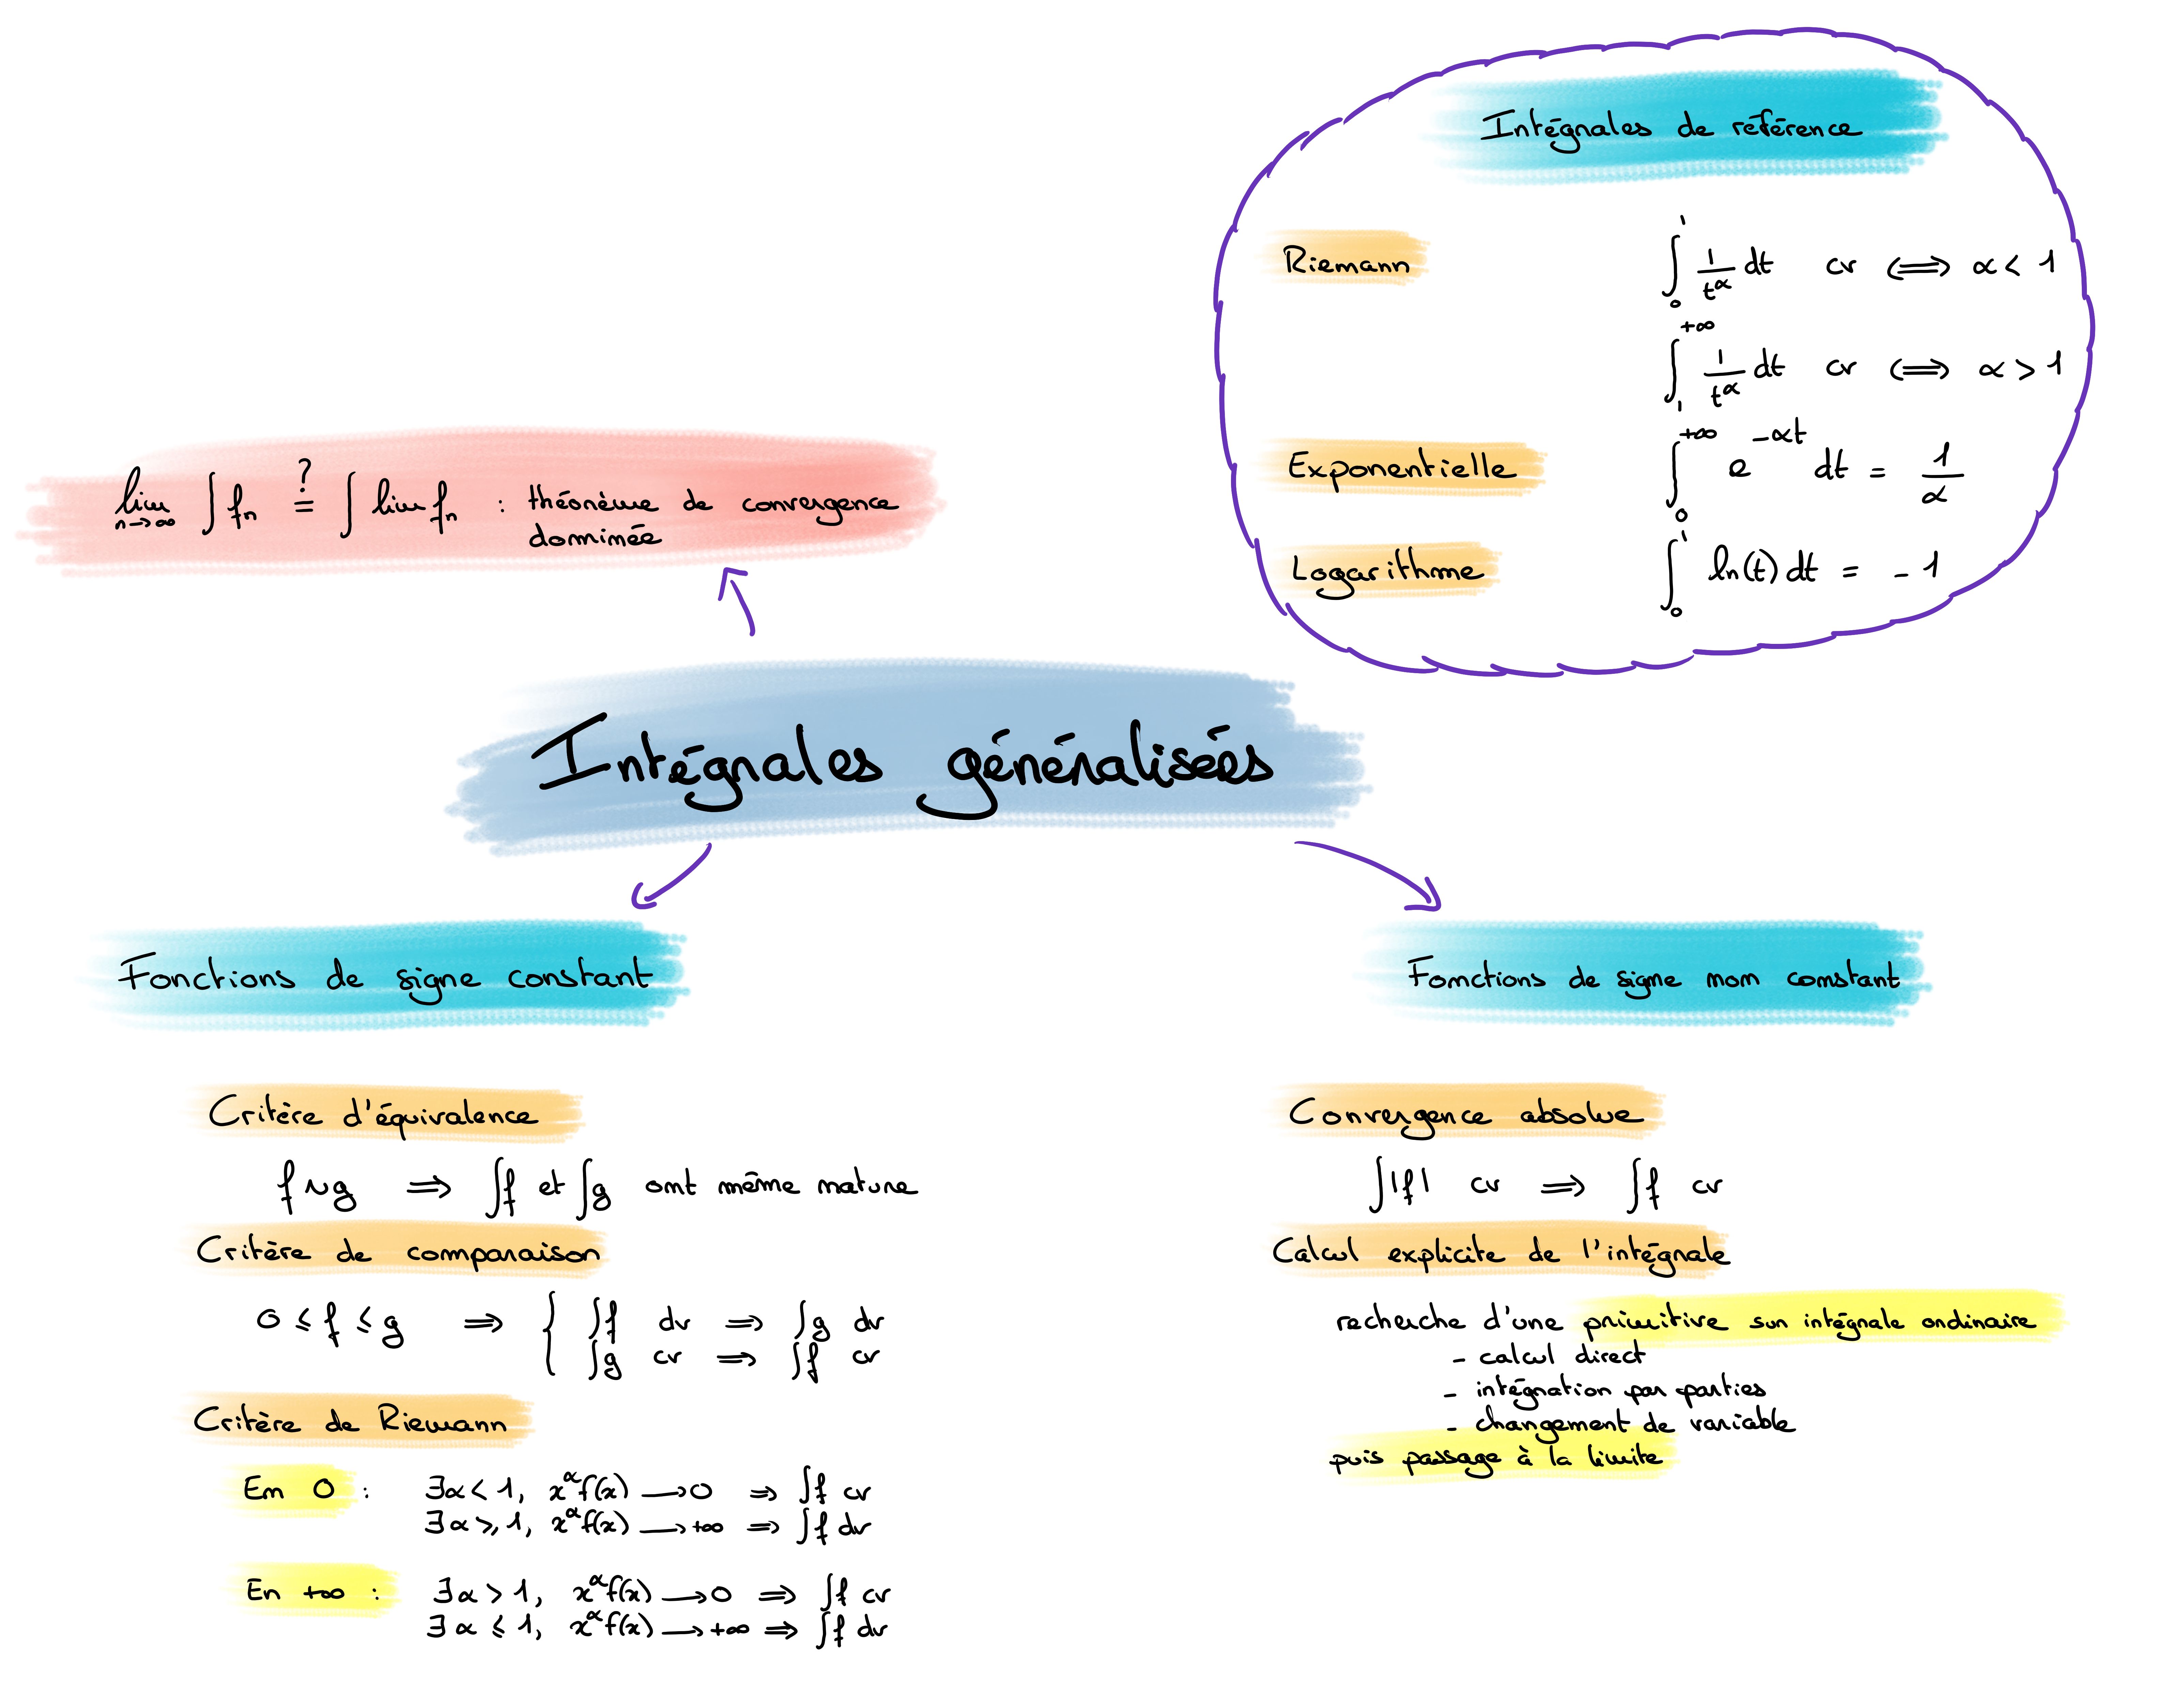 Intégrales de référence
Riemann ∫₀¹ 1/t^α dt cv ⟺ α < 1
∫₁^{+∞} 1/t^α dt cv ⟺ α > 1
Exponentielle ∫₀^{+∞} e^{-αt} dt = 1/α
Logarithme ∫₀¹ ln(t) dt = -1
lim_{n→∞} ∫ fₙ ≟ ∫ lim fₙ : théorème de convergence
dominée
Intégrales généralisées
Fonctions de signe constant
Critère d'équivalence
f ~ g ⟹ ∫f et ∫g ont même nature
Critère de comparaison
0 ≤ f ≤ g ⟹ { ∫f dv ⟹ ∫g dv
∫g cv ⟹ ∫f cv
Critère de Riemann
En 0 : ∃α < 1, x^α f(x) → 0 ⟹ ∫f cv
∃α ≥ 1, x^α f(x) → +∞ ⟹ ∫f dv
En +∞ : ∃α > 1, x^α f(x) → 0 ⟹ ∫f cv
∃α ≤ 1, x^α f(x) → +∞ ⟹ ∫f dv
Fonctions de signe non constant
Convergence absolue
∫|f| cv ⟹ ∫f cv
Calcul explicite de l'intégrale
recherche d'une primitive sur intégrale ordinaire
- calcul direct
- intégration par parties
- changement de variable
puis passage à la limite